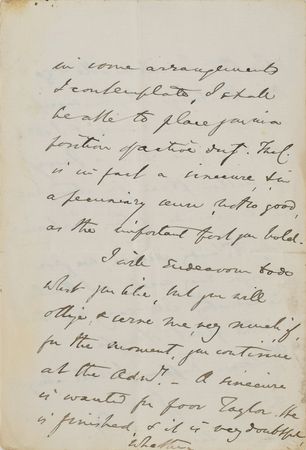 in some arrangements
I contemplate, I shall
be able to place you in a
position of active duty. The C.
is in fact a sinecure, & in
a pecuniary sense, not so good
as the important post you hold.
I will endeavour to do
what you like, but you will
oblige, & serve me, very much, if,
for the moment, you continue
at the Adm^y. – A sinecure
is wanted for poor Taylor. He
is finished, & it is very doubtful,
whether